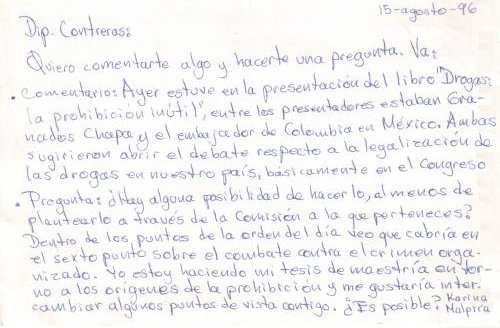 15-agosto-96
Dip. Contreras:
Quiero comentarte algo y hacerte una pregunta. Va:
• Comentario: Ayer estuve en la presentación del libro "Drogas:
la prohibición inútil", entre los presentadores estaban Gra-
nados Chapa y el embajador de Colombia en México. Ambos
sugirieron abrir el debate respecto a la legalización de
las drogas en nuestro país, básicamente en el Congreso
• Pregunta: ¿Hay alguna posibilidad de hacerlo, al menos de
plantearlo a través de la Comisión a la que perteneces?
Dentro de los puntos de la orden del día veo que cabría en
el sexto punto sobre el combate contra el crimen orga-
nizado. Yo estoy haciendo mi tesis de maestría en tor-
no a los orígenes de la prohibición y me gustaría inter-
cambiar algunos puntos de vista contigo. ¿Es posible? Karina
Malpica